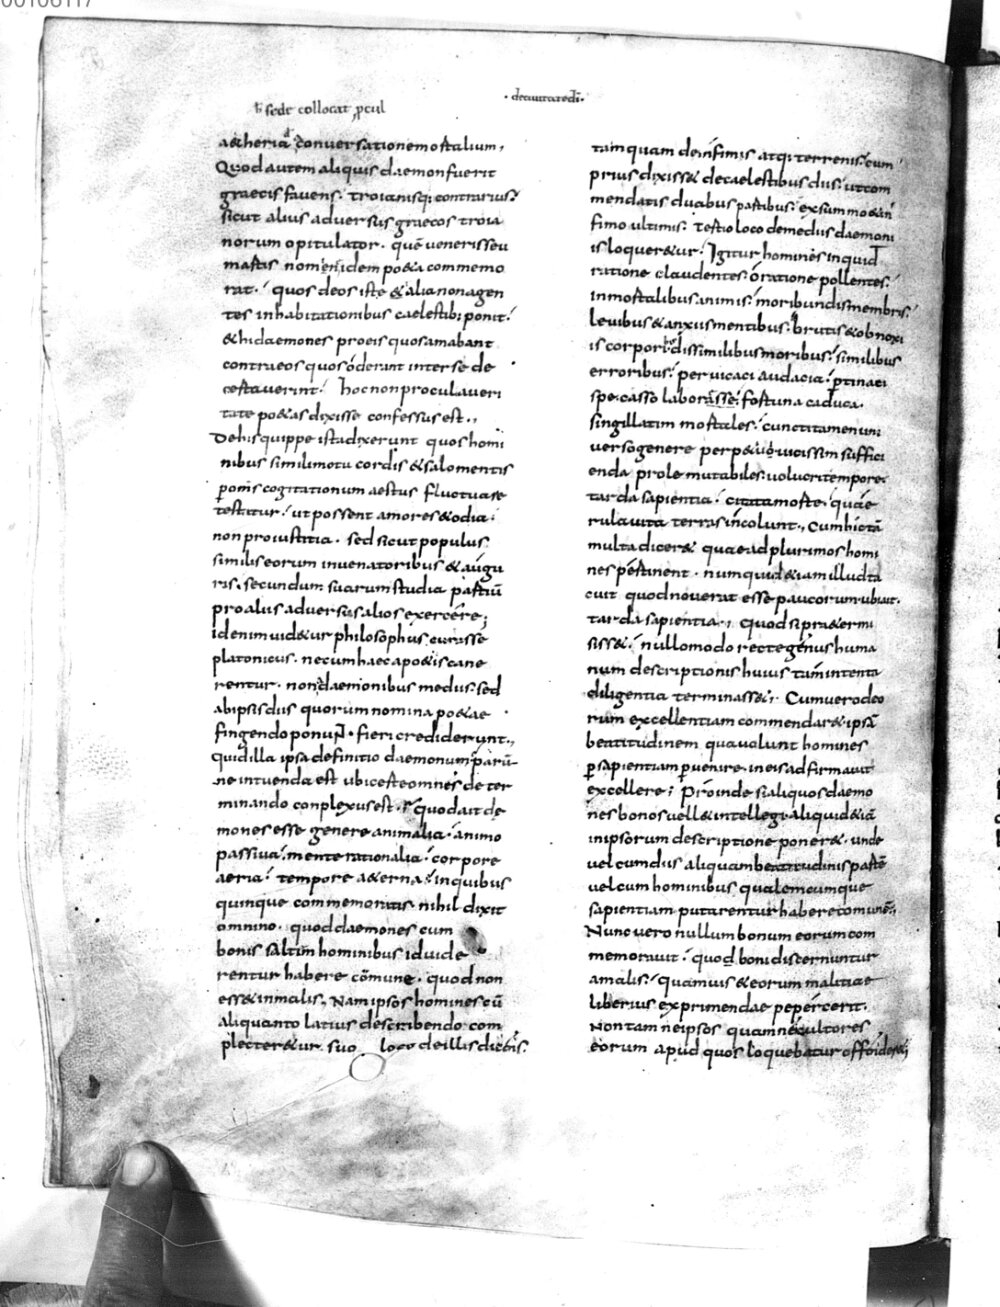 00106117
· decivitatedī ·
sede collocat
a&heria conversatione mortalium,
Quod autem aliquis daemon fuerit
graecis favens. troianisq; contrarius.
sicut alius adversus graecos troia
norum opitulator. quē veneris seu
martis nomen idem po&a commemo
rat. quos deos iste & alia non agen
tes in habitationibus caelestib; ponit.
& hi daemones pro eis quos amabant
contra eos quos oderant inter se de
certaverint. hoc non procul a veri
tate po&as dixisse confessus est.,
De his quippe ista dixerunt quos homi
nibus simili motu cordis & salo mentis
p omnis cogitationum aestus fluctuare
testatur. ut possent amores & odia
non pro iustitia. sed sicut populus
similis eorum in venatoribus & aurigu
ris. secundum suarum studia partiū
pro aliis adversus alios exercere;
id enim vid&ur philosophus curasse
platonicus. ne cum haec a po&is cane
rentur. non daemonibus mediis. sed
ab ipsis diis quorum nomina po&ae
fingendo ponunt. fieri crederent.,
quid illa ipsa definitio daemonum parū
ne intuenda est ubi certe omnes deter
minando conplexus est. quod ait de
mones esse genere animalia. animo
passiva. mente rationalia. corpore
aeria. tempore a&erna. in quibus
quinque commemoratis nihil dixit
omnino. quod daemones cum
bonis saltim hominibus id vide
rentur habere cōmune. quod non
ess& in malis, Nam ipsos homines cū
aliquanto latius describendo com
plecter&ur. suo loco de illis dicens.
tamquam de infimis atq; terrenis. cum
prius dixiss& de caelestibus diis. ut com
mendatis duabus partibus. ex summo & in
fimo ultimis. tertio loco de mediis daemoni
is loquer&ur. Igitur homines inquid
ratione claudentes. oratione pollentes.
inmortalibus animis. moribundis membris.
levibus & anxiis mentibus. brutis & obnoxi
is corporib; dissimilibus moribus. similibus
erroribus. pervicaci audacia. ptinaci
spe. casso labore fortuna caduca.
singillatim mortales. cuncti tamen uni
verso genere perp&ui vicissim suffici
enda prole mutabiles. volucri tempore.
tarda sapientia. cita morte. quae
rula vita terras incolunt., Cum hic tā
multa dicer& quae ad plurimos homi
nes pertinent. numquid & iam illud ta
cuit quod noverat esse paucorum. ubi ait.
tarda sapientia., quod si pra&ermi
siss&. nullo modo recte genus huma
num descriptionis huius tam intenta
diligentia terminass&, Cum vero deo
rum excellentiam commendar& ipsā
beatitudinem qua volunt homines
p sapientiam pvenire. in eis adfirmavit
excellere; Proinde si aliquos daemo
nes bonos vell& intellegi. aliquid & iā
in ipsorum descriptione poner&. unde
vel cum diis aliquam beatitudinis partē
vel cum hominibus qualemcumque
sapientiam putarentur habere comunē.
Nunc vero nullum bonum eorum com
memoravit. quod boni discernuntur
a malis. quamvis & eorum malitiae
liberius exprimendae pepercerit.
Non tam ne ipsos quam ne cultores
eorum apud quos loquebatur